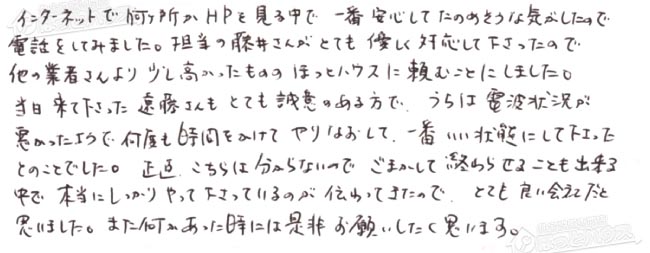 インターネットで何ヶ所かHPを見る中で一番安心してたのめそうな気がしたので
電話をしてみました。担当の藤井さんがとても優しく対応して下さったので
他の業者さんより少し高かったもののほっとハウスに頼むことにしました。
当日来て下さった遠藤さんもとても誠意のある方で、うちは電波状況が
悪かったようで何度も時間をかけてやりなおして、一番いい状態にして下さった
とのことでした。正直、こちらは分からないのでごまかして終わらせることも出来る
中で本当にしっかりやって下さっているのが伝わってきたので、とても良い会社だと
思いました。また何かあった時には是非お願いしたく思います。